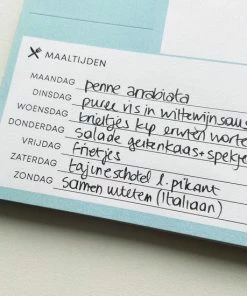 MAALTIJDEN
MAANDAG penne arrabiata
DINSDAG puree vis in wittewijnsaus
WOENSDAG krieltjes kip erwten worte
DONDERDAG salade geitenkaas + spekje
VRIJDAG frietjes
ZATERDAG tajineschotel l. pikant
ZONDAG samen uiteten (Italiaan)